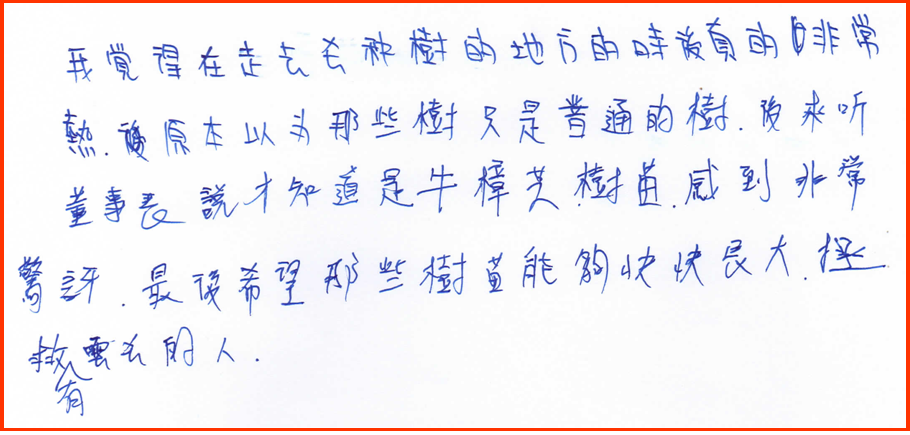 我覺得在走去去种樹的地方的時後真的非常
熱.後原本以为那些樹只是普通的樹.後來听
董事長說才知道是牛樟芝樹苗.感到非常
驚訝.最後希望那些樹苗能夠快快長大.拯
救有需要的人.